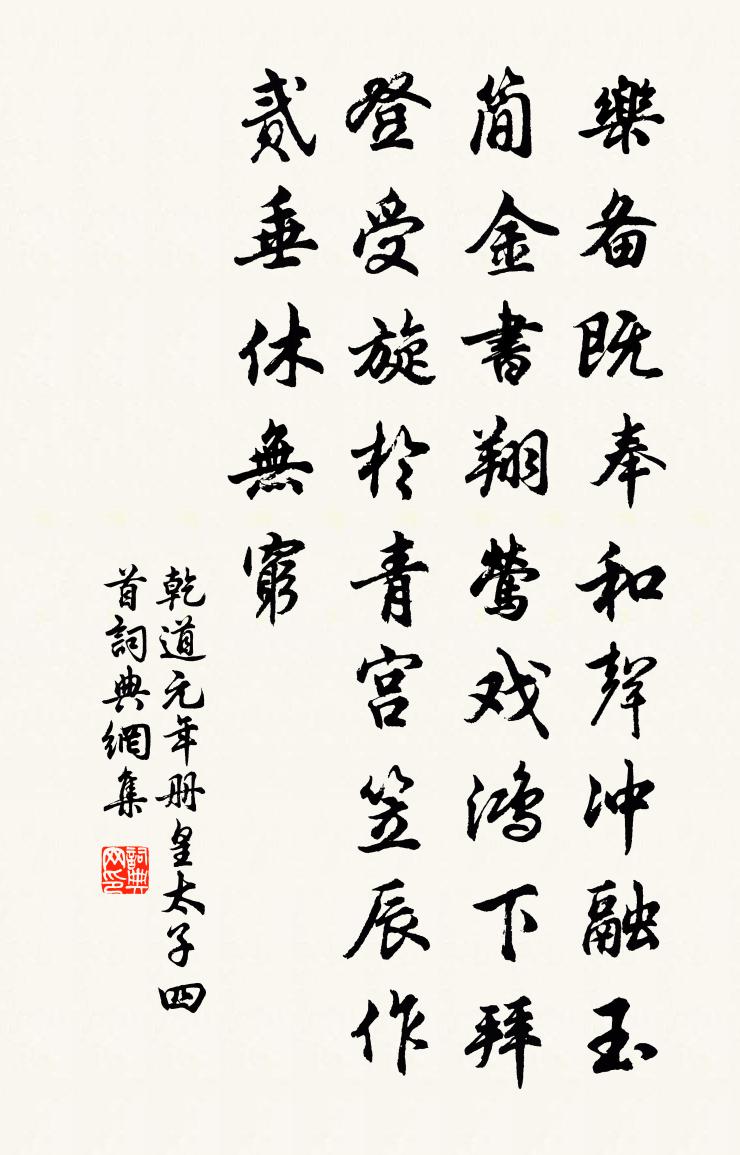 樂备既奉和聲冲融玉
简金書翔鶯戏鸿下拜
登受旋於青宫笠辰作
貳垂休無窮
乾道元年册皇太子四
首詞典網集
詞典网印